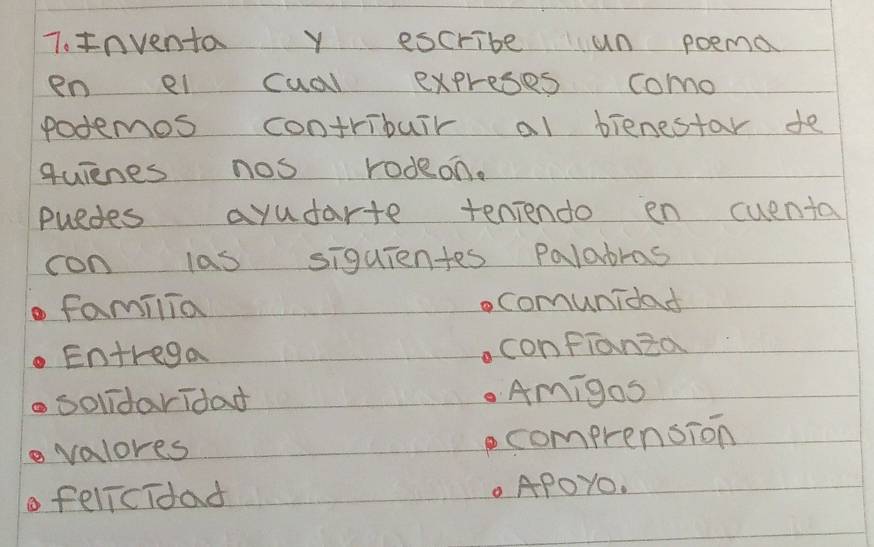 7. Inventa y escribe un poema
en el cual expreses como
podemos contribuir al bienestar de
quienes nos rodeon.
puedes ayudarte teniendo en cuenta
con las siguientes Palabras
• familia • comunidad
• Entrega • confianza
• solidaridad • Amigos
• valores • comprensión
• felicidad • APOYO.